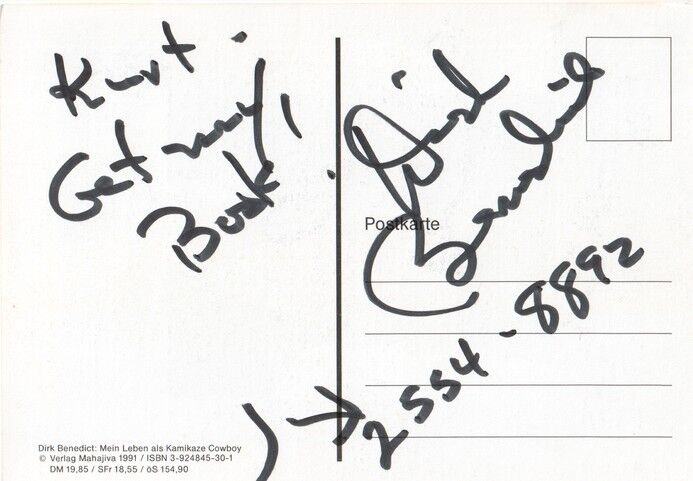 Kurt.
Get my
Book!
Dirk
Benedict
Postkarte
2554-8892
Dirk Benedict: Mein Leben als Kamikaze Cowboy
© Verlag Mahajiva 1991 / ISBN 3-924845-30-1
DM 19,85 / SFr 18,55 / öS 154,90